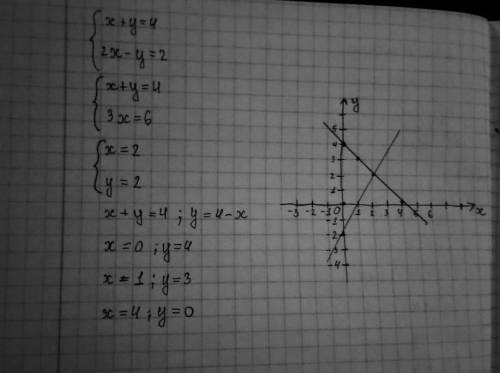 x+y=4
2x-y=2
x+y=4
3x=6
x=2
y=2
x+y=4; y=4-x
x=0; y=4
x=1; y=3
x=4; y=0
y
5
4
3
2
1
-3 -2 -1 0 1 2 3 4 5 6 x
-1
-2
-3
-4